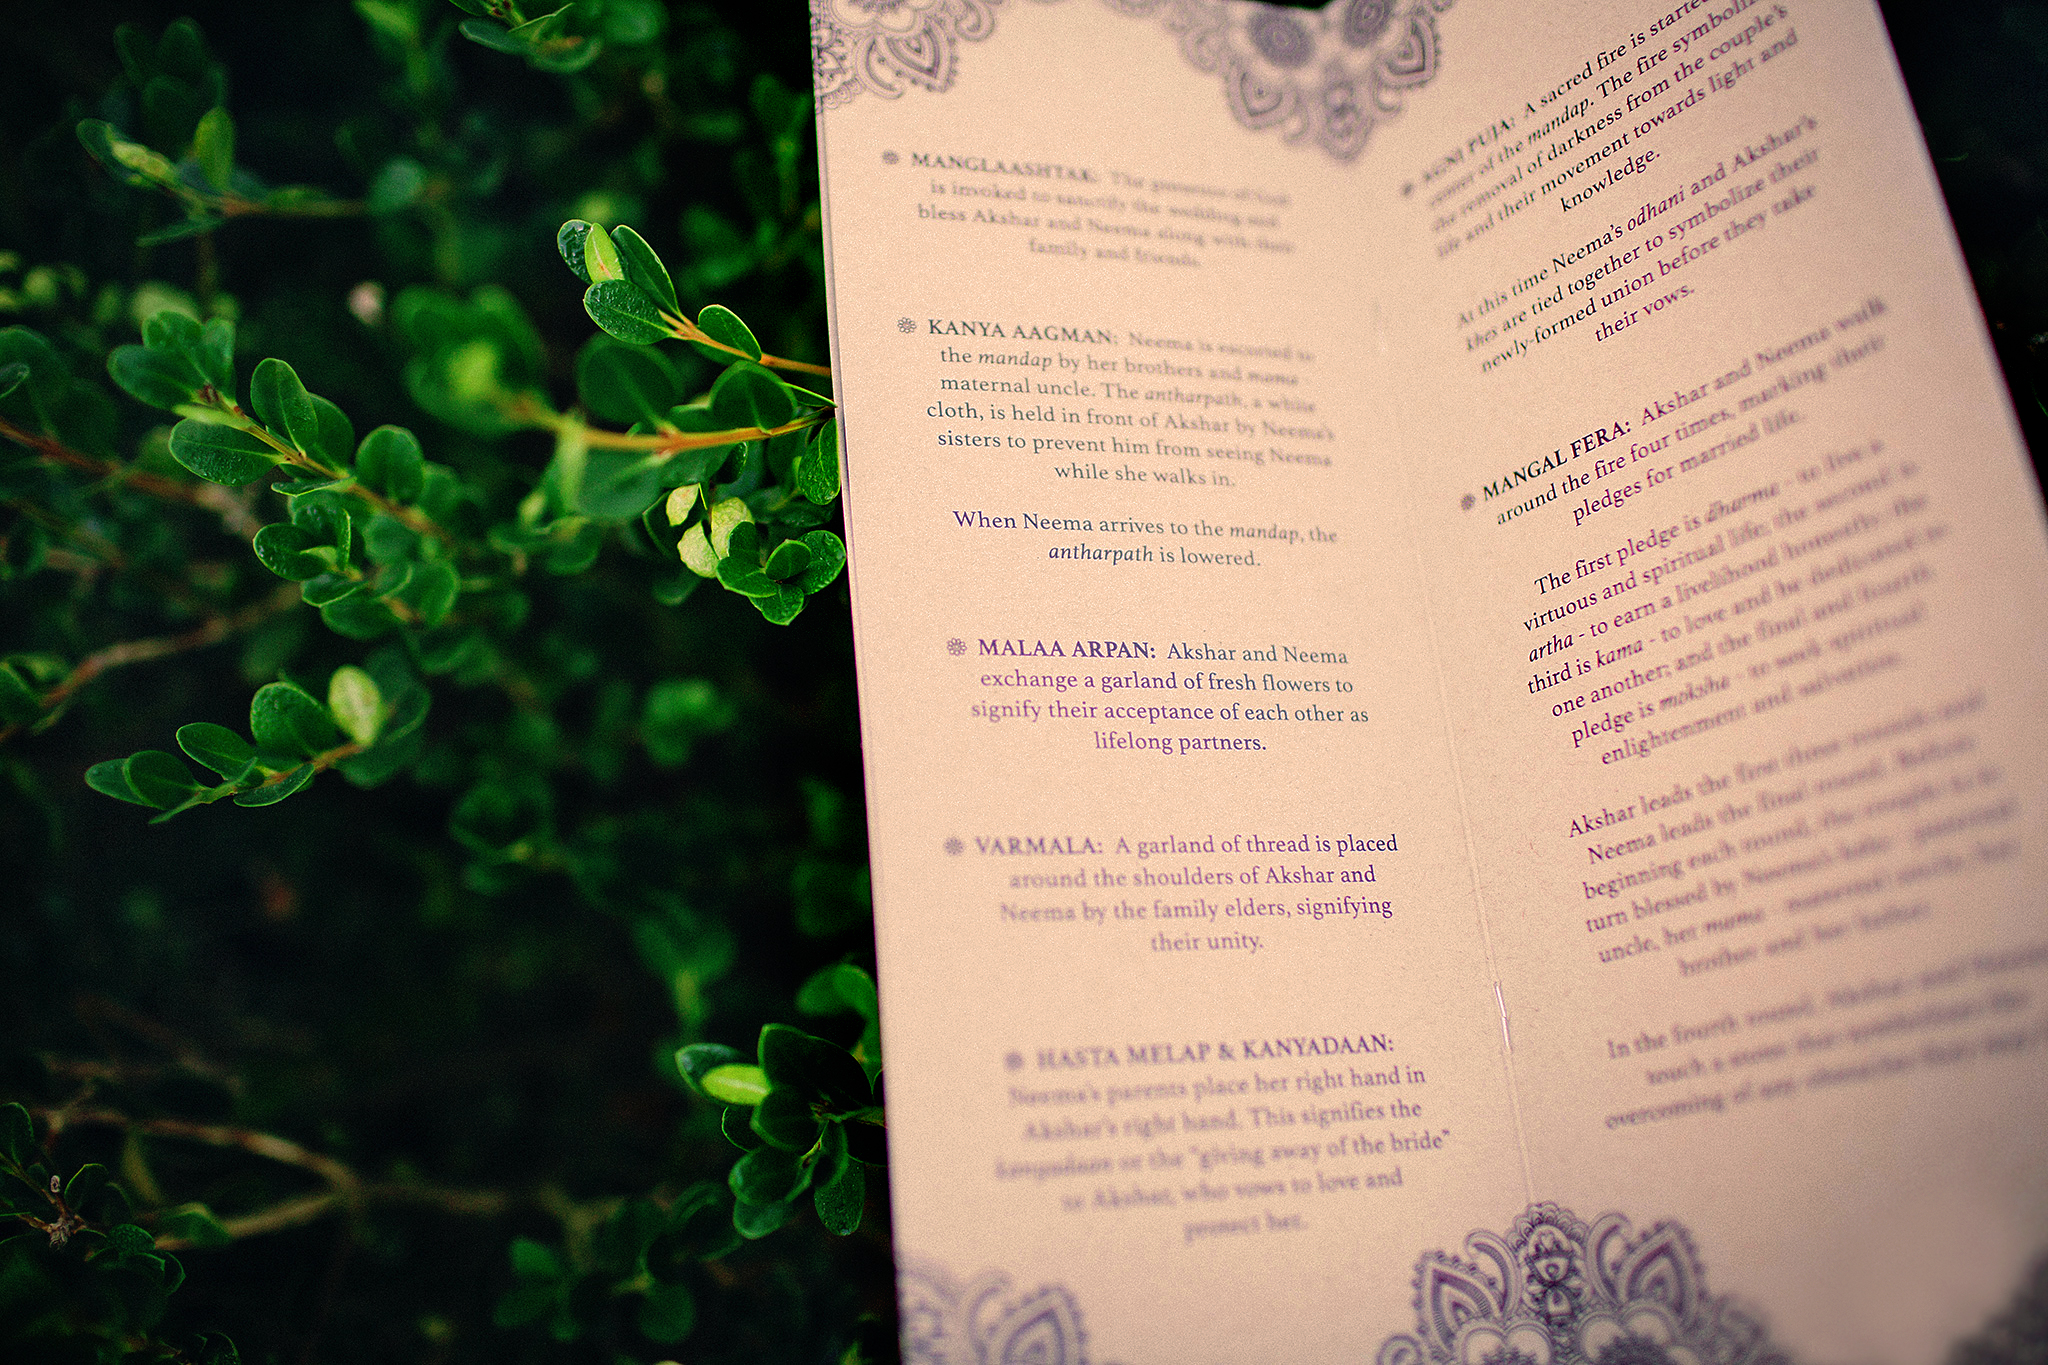 MANGLAASHTAK: The presence of God
is invoked to sanctify the wedding and
bless Akshar and Neema along with their
family and friends.
KANYA AAGMAN: Neema is escorted to
the mandap by her brothers and mama -
maternal uncle. The antharpath, a white
cloth, is held in front of Akshar by Neema's
sisters to prevent him from seeing Neema
while she walks in.
When Neema arrives to the mandap, the
antharpath is lowered.
MALAA ARPAN: Akshar and Neema
exchange a garland of fresh flowers to
signify their acceptance of each other as
lifelong partners.
VARMALA: A garland of thread is placed
around the shoulders of Akshar and
Neema by the family elders, signifying
their unity.
HASTA MELAP & KANYADAAN:
Neema's parents place her right hand in
Akshar's right hand. This signifies the
kanyadaan or the "giving away of the bride"
to Akshar, who vows to love and
protect her.
AGNI PUJA: A sacred fire is started
center of the mandap. The fire
the removal of darkness from the couple's
life and their movement towards light and
knowledge.
At this time Neema's odhani and Akshar's
khes are tied together to symbolize their
newly-formed union before they take
their vows.
MANGAL FERA: Akshar and Neema walk
around the fire four times, marking their
pledges for married life.
The first pledge is dharma - to live a
virtuous and spiritual life; the second is
artha - to earn a livelihood honestly; the
third is kama - to love and be dedicated to
one another; and the final and fourth
pledge is moksha - to seek spiritual
enlightenment and salvation.
Akshar leads the first three rounds and
Neema leads the final round. Before
beginning each round, the couple is in
turn blessed by Neema's brother, maternal
uncle, her mama -
brother and
In the fourth round, Akshar and Neema
touch a stone that symbolizes the
overcoming of any obstacles that may